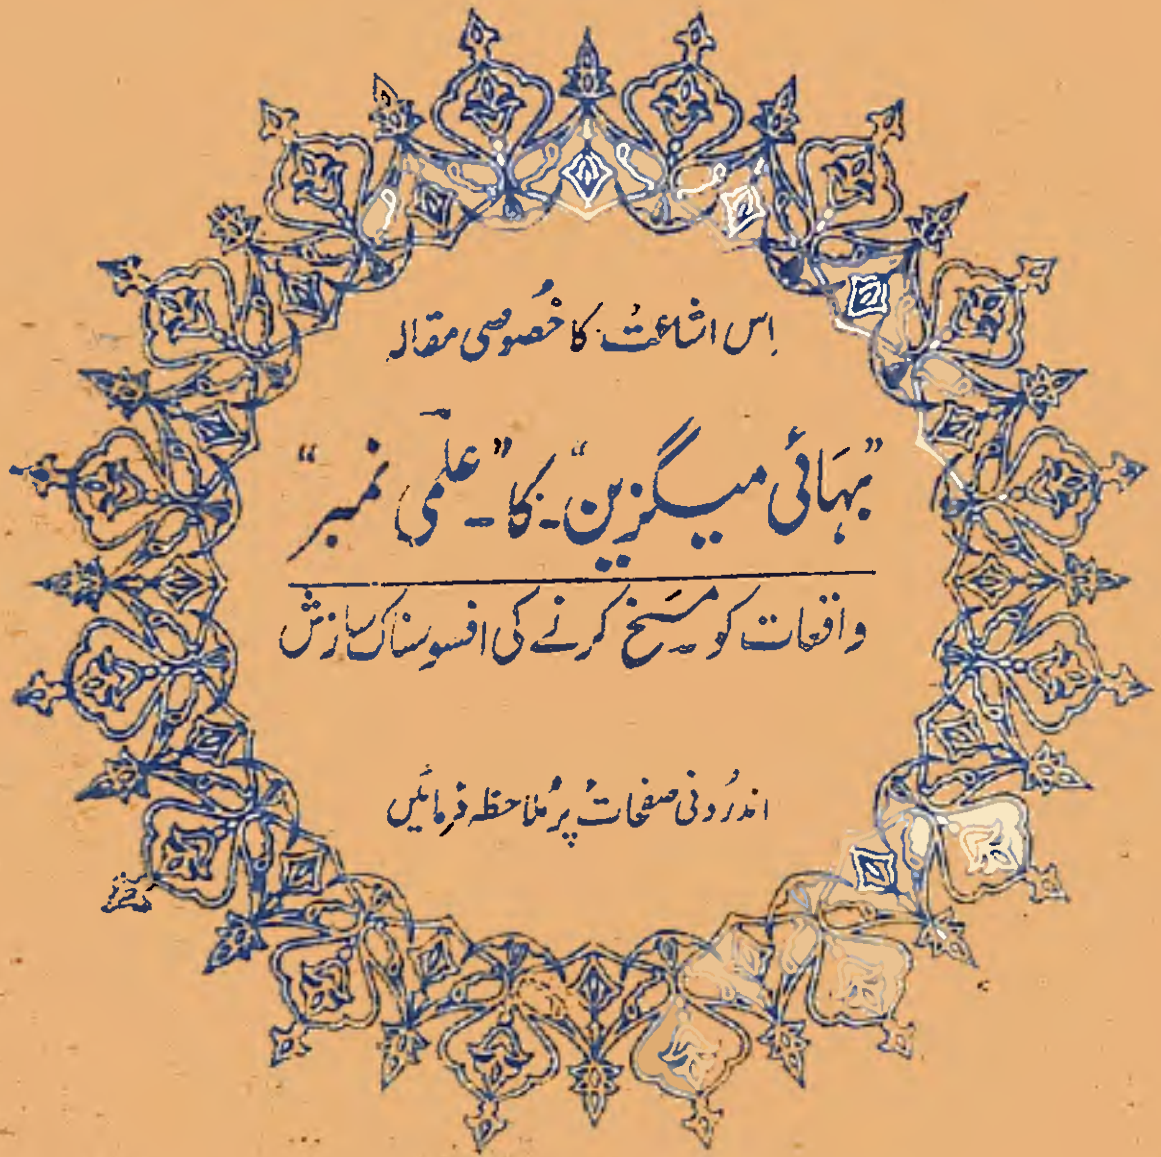 اِس اشاعت کا خصُوصی مقالہ
”بہَائی میگزین“ کا ”علمی نمبر“
واقعات کو مسَخ کرنے کی افسوسناک سازش
اندرُونی صفحات پر مُلاحظہ فرمائیں